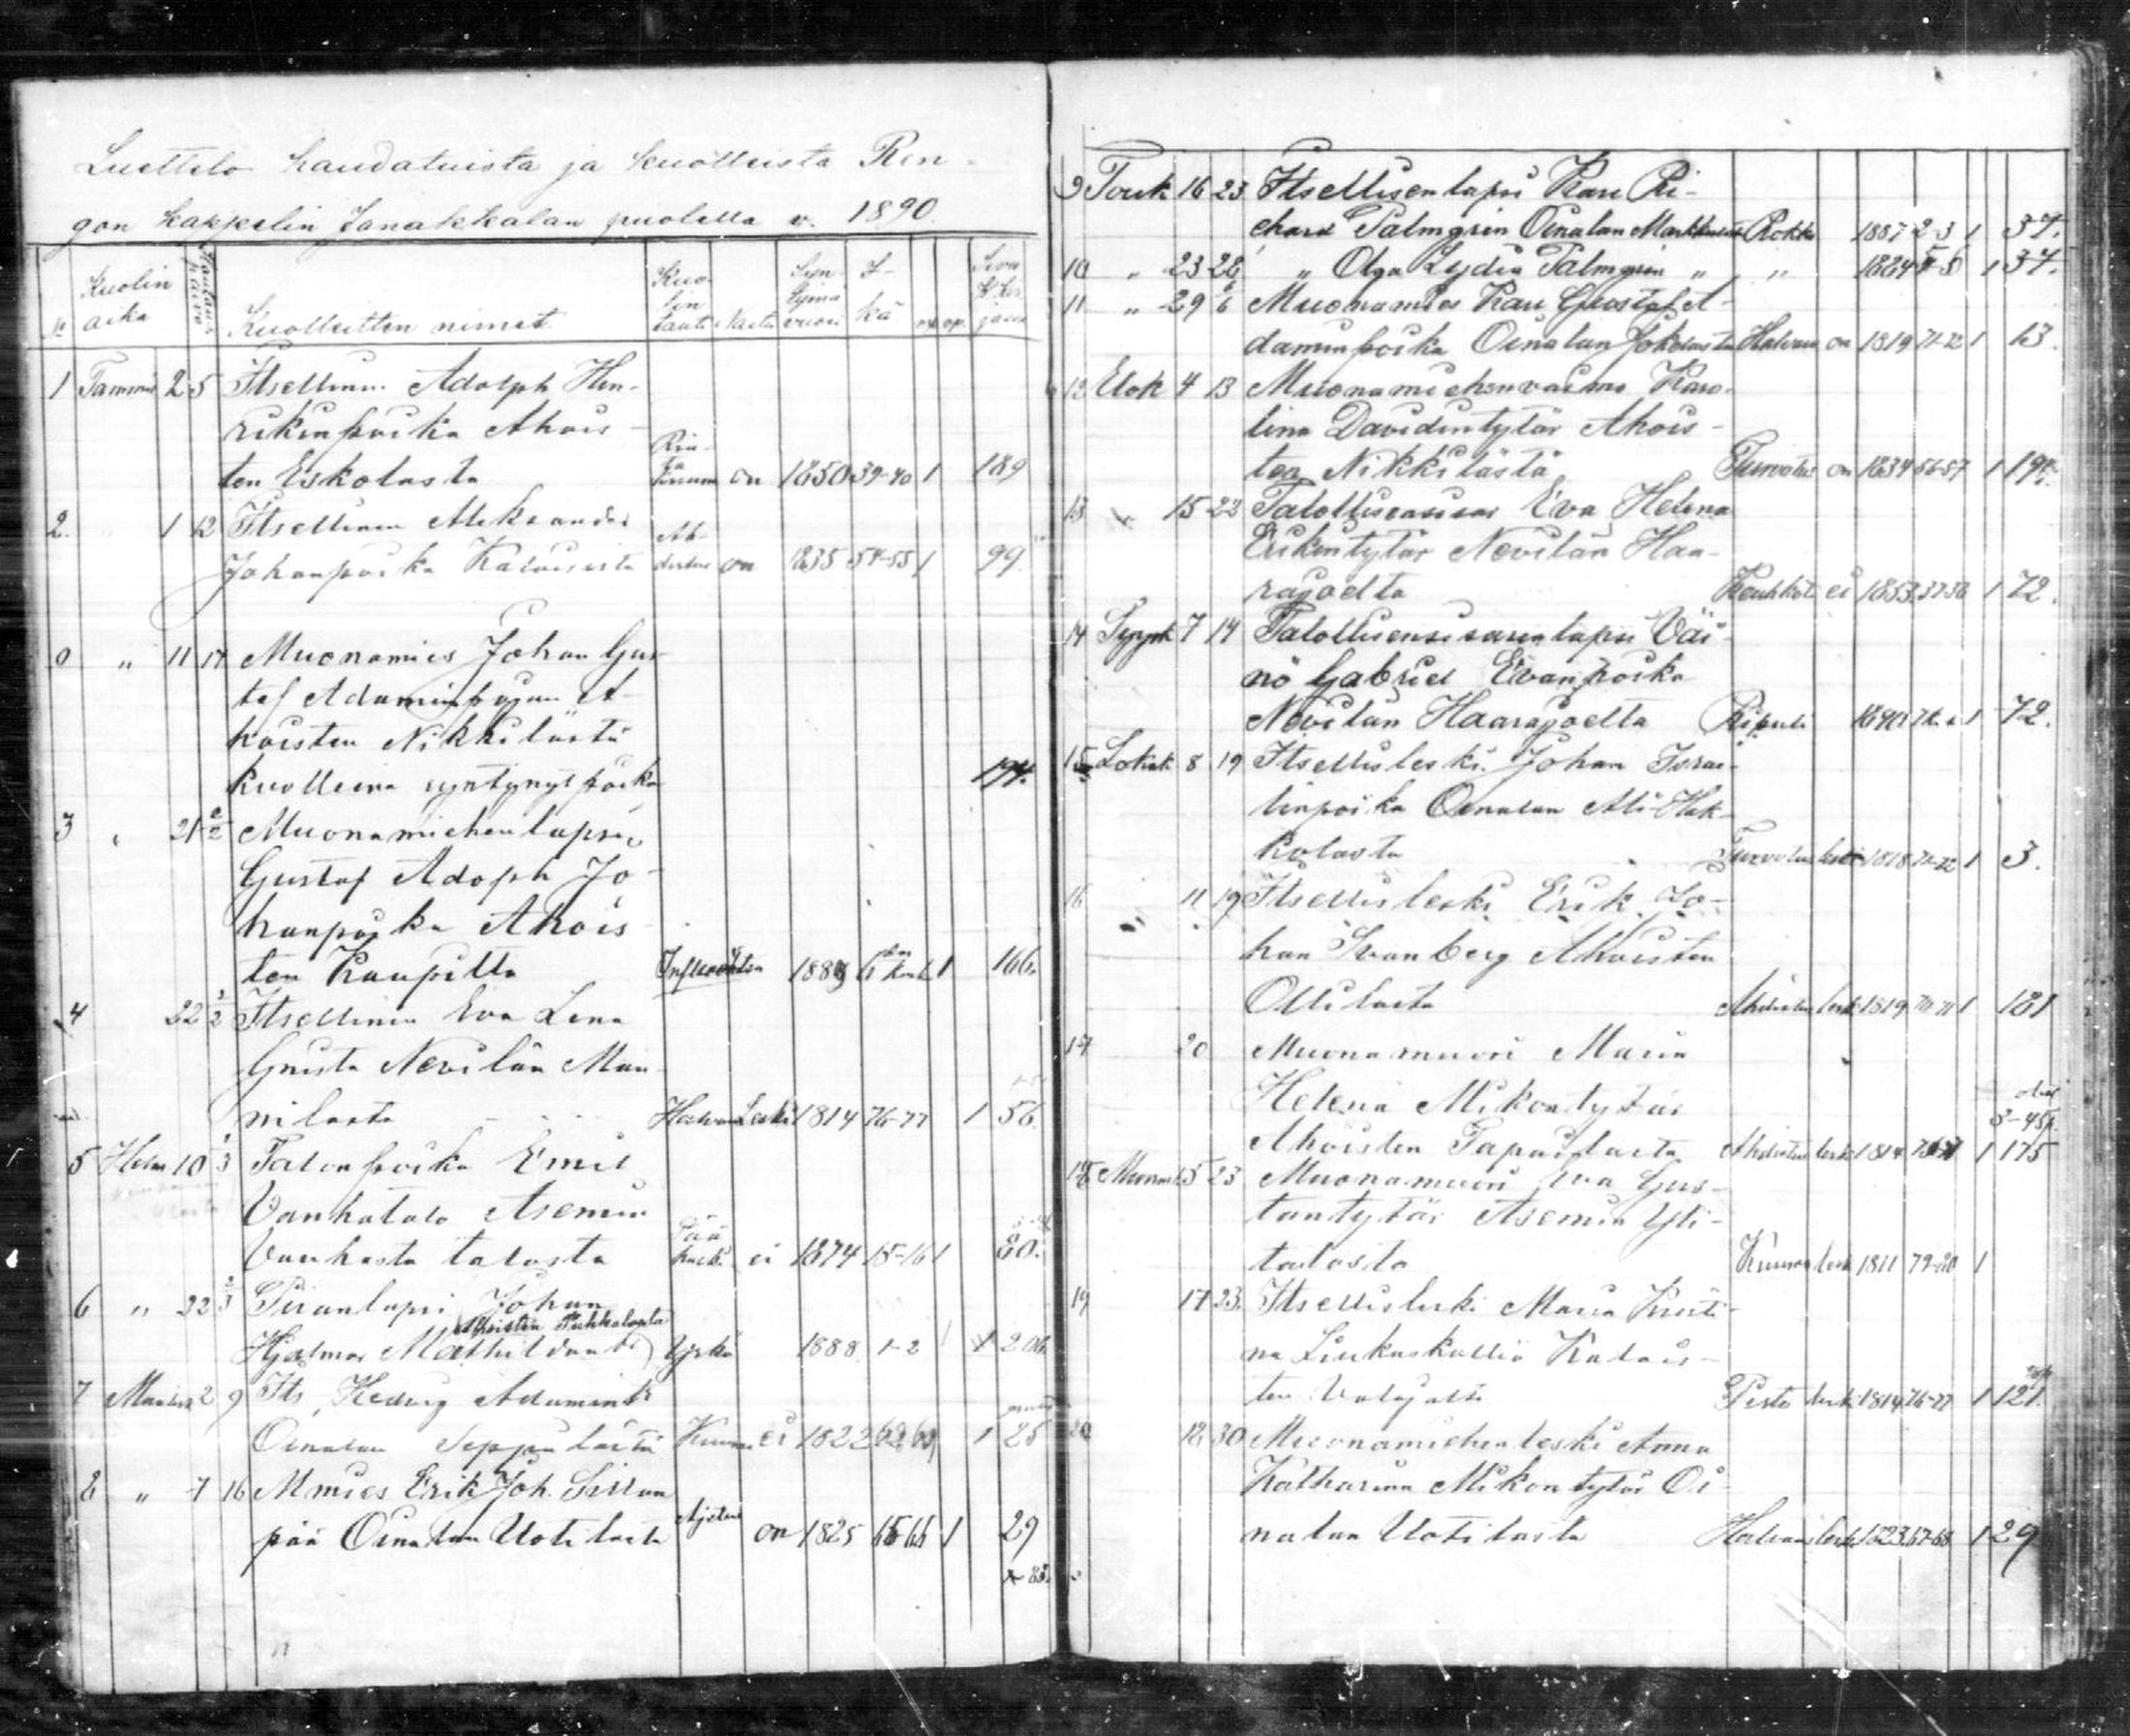 Luettelo haudatuista ja kuolleista Ren-
gon kappelin Janakkalan puolella v. 1890.
№ Kuolin aika Hautaus päivä Kuolleitten nimet Kuo-lin tauti Naitu Syn-tymä vuosi I-kä mp. vp. Sivu
1 Tammi 2 5 Itsellinen Adolph Hen-
rikinpoika Ahois-
ten Eskolasta on 1850 39-40 1 189
2. 1 12 Itsellinen Aleksander
Johanpoika Kaloisista on 1835 54-55 1 99.
0 " 11 17 Muonamies Johan Gus-
taf Adaminpojan A-
hoisten Nikkilästä
kuolleena syntynyt poika 194.
3 21 2/2 Muonamiehen lapsi
Gustaf Adoph Jo-
hanpoika Ahois-
ten Kaupilta 1889 1 166.
4 22 2/2 Itsellinen Eva Lena
Gnista Nevilän Man-
nilasta Halvaus Leski 1814 76-77 1 56.
5 Helm 10 1/3 Talonpoika Emil
Vanhatalo Asemin
Vanhasta talosta ei 1874 15-16 1 80.
6 " 22 2/3 Piianlapsi Johan
Ahoisten Puhkalasta
Hjalmar Mathildan Yskä 1888 1-2 1
7 Maalisk 2 9 Its, Hedvig Adamint.
Oinalan Seppälästä Kuume ei 1822 1 25
8 " 7 16 Mmies Erik Joh. Sillan
pää Oinalan Uotilasta on 1825 1 29
9 Touk 16 23 Itsellisen lapsi Karl Ri-
chard Palmgrin Oinalan Rokko 1887 2-3 1 37.
10 " 23 28 " Olga Lydia Palmgrin " " 1884 1 37.
11 " 29 6 Muonamies Karl Gustaf A-
daminpoika Oinalan Jokelasta Halvaus on 1819 71-72 1 13.
12 Elok 4 13 Muonamiehenvaimo Karo-
lina Davidintytär Ahois-
ten Nikkilästä Turvotus on 1834 56-57 1 194.
13 15 23 Talollisensisar Eva Helena
Erikintytär Nevilän Haa-
rajoelta Keuhkot. ei 1853 37-38 1 72.
14 Syysk 7 14 Talollisensisaren lapsi Väi-
nö Gabriel Evanpoika
Nevilän Haarajoelta Ripuli 1890 1 72.
15 Lokak 8 19 Itsellisleski Johan Israe-
linpoika Oinalan Ali-Hak-
kolasta Turvotus leski 1818 71-72 1 3.
16 11 19 Itsellisleski Erik Jo-
han Svanberg Ahoisten
Ollilasta Ahdistus leski 1819 70-71 1 181
17 20 Muonamuori Maria
Helena Mikontytär
Ahoisten Tapailasta Ahdistus leski 1814 1 175
18 Marrask 15 23 Muonamuori Eva Gus-
tantytär Asemin Yli-
talosta Kuume leski 1811 79-80 1
19 17 23. Itsellisleski Maria Kristi-
na Liukaskallio Kalois-
ten Pisto leski 1814 76-77 1 121.
20 18 30 Muonamiehenleski Anna
Katharina Mikontytär Oi-
nalan Uotilasta Halvaus leski 1823 67-68 1 29